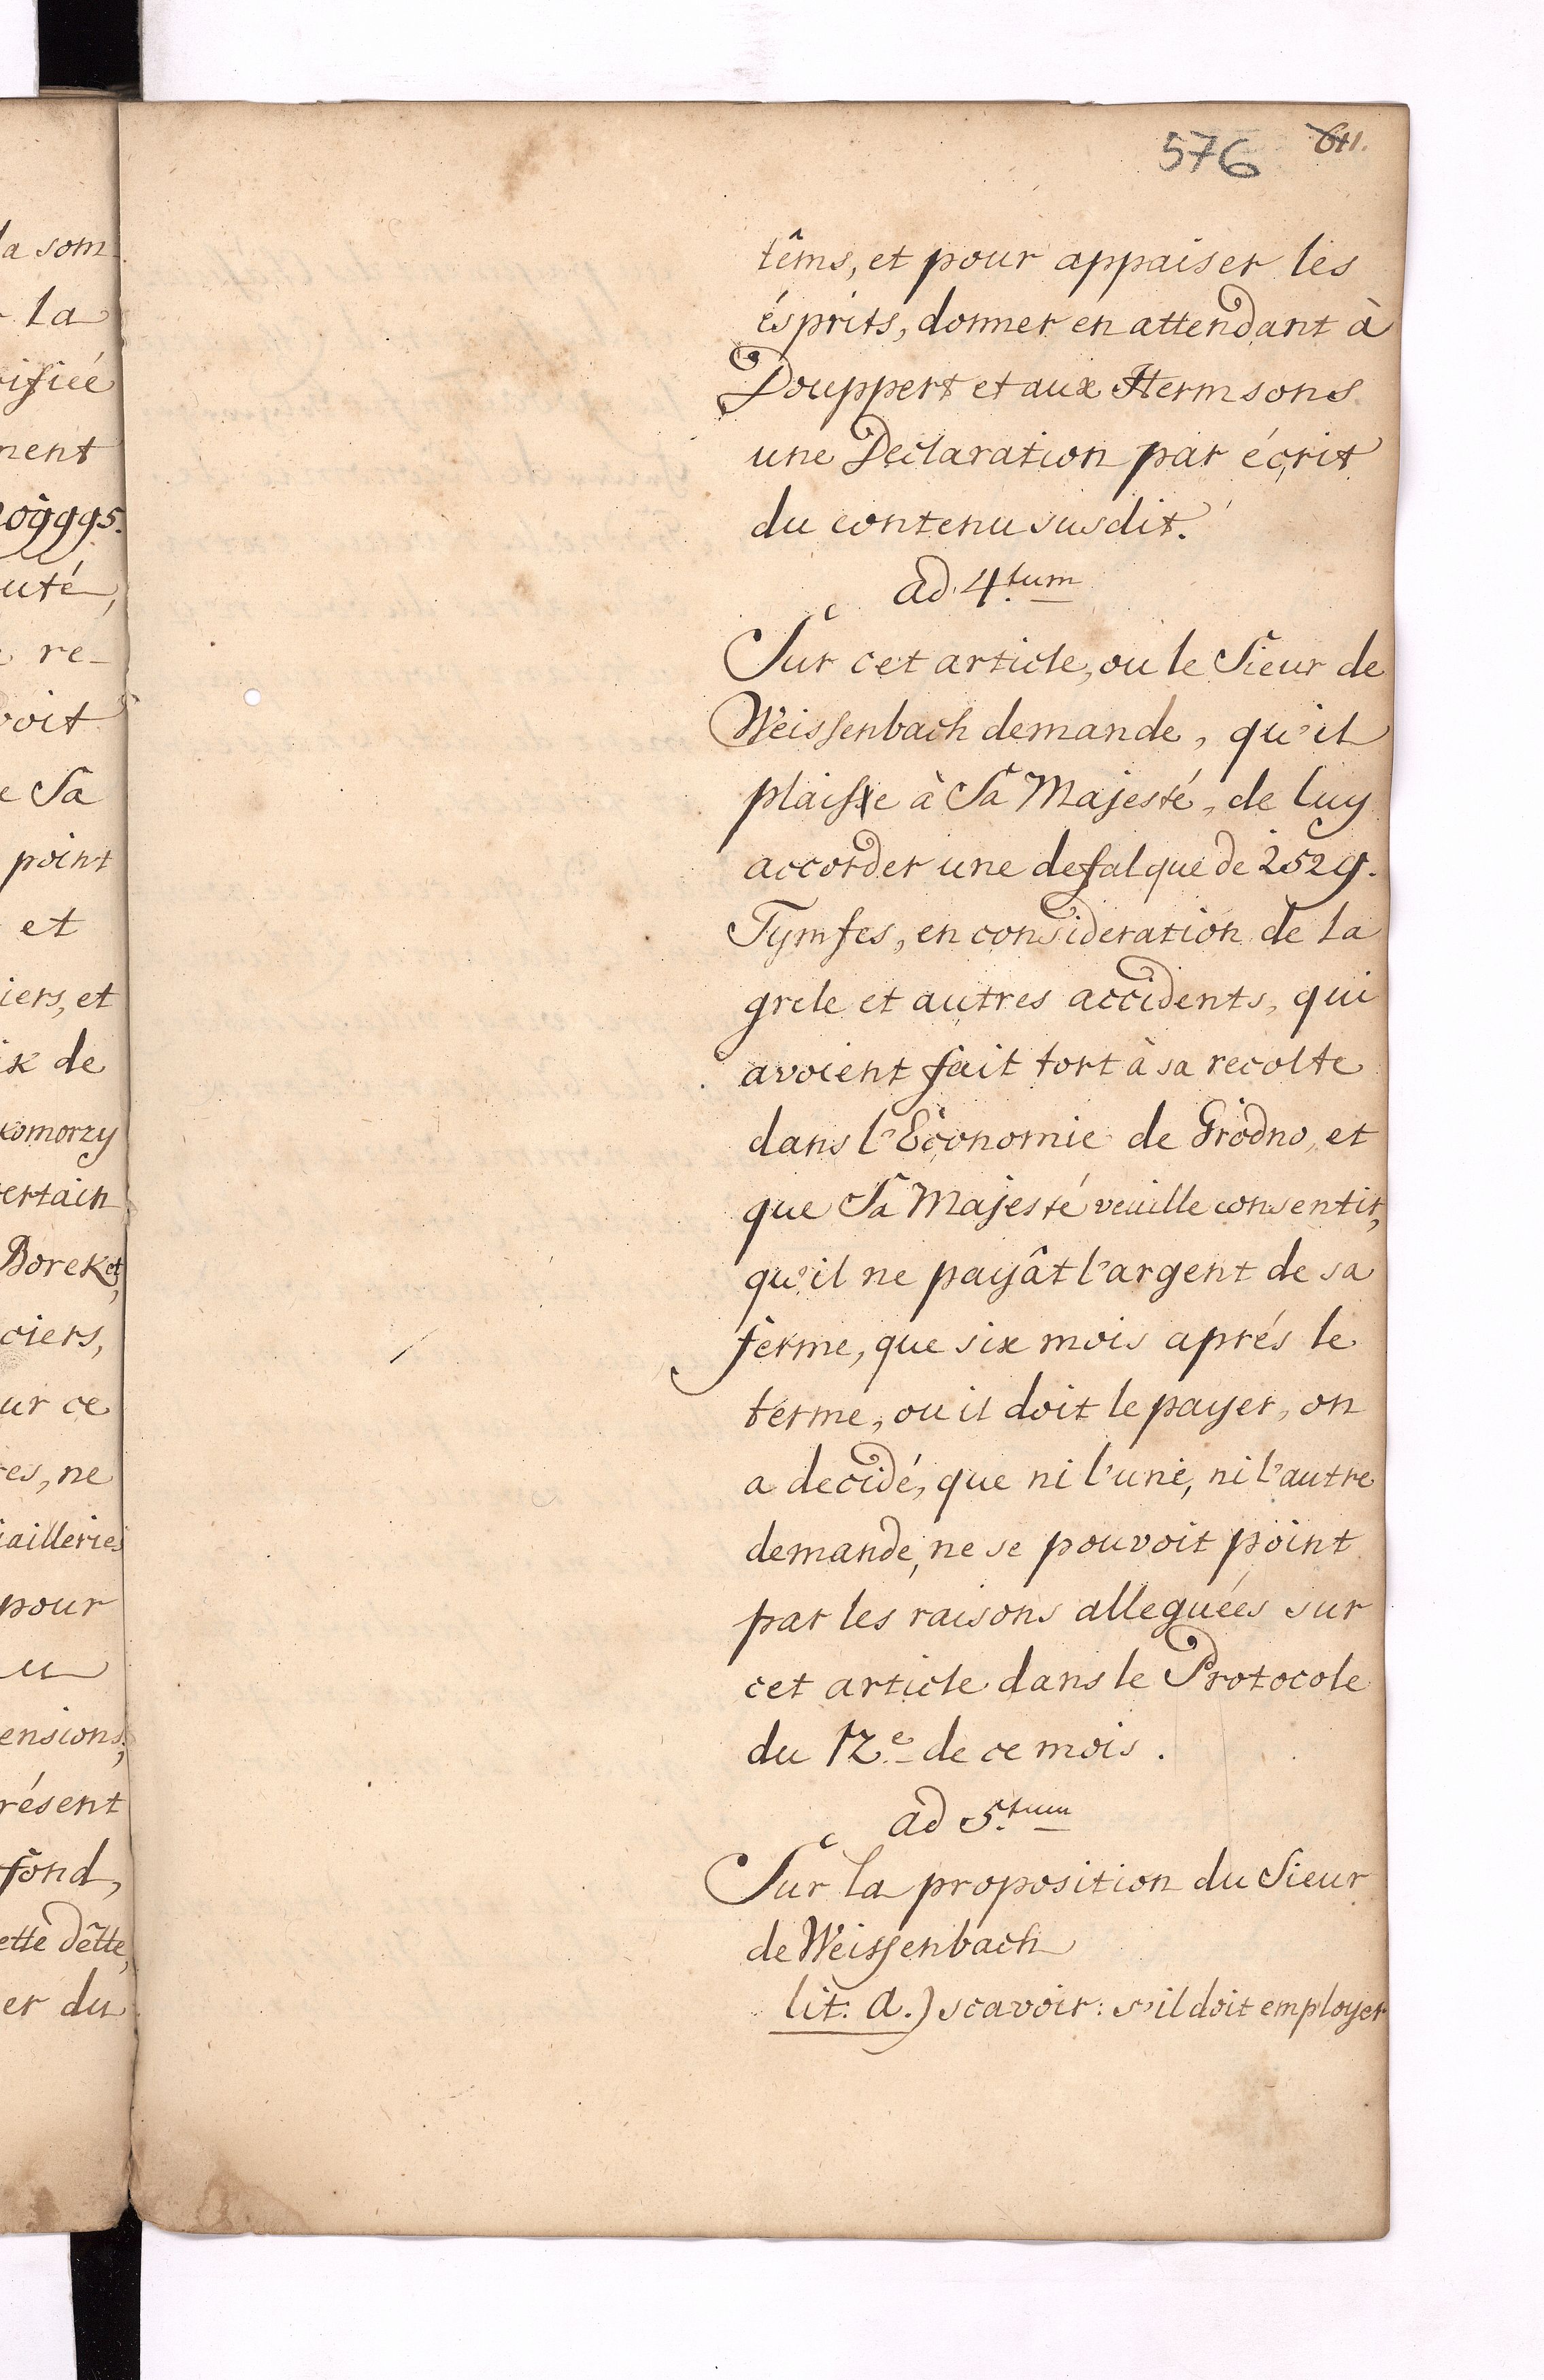 a som
la
ifiée
ment
uté,
re-
voit
e Sa
point
et
iers, et
ix de
komorzy
ertain
Borek et
ciers,
ur ce
res, ne
iailleries
pour
u
ensions,
résent
fond,
ette dêtte,
er du
576 611.
têms, et pour appaiser les
ésprits, donner en attendant à
Douppert et aux Hermsons
une Declaration par écrit
du contenu susdit.
ad 4.tum
Sur cet article, ou le Sieur de
Weissenbach demande, qu'il
plaise à Sa Majesté, de luy
accorder une defalque de 2529.
Tymfes, en consideration de la
grele et autres accidents, qui
avoient fait tort à sa recolte
dans l'Economie de Grodno, et
que Sa Majesté veuille consentir,
qu'il ne payât l'argent de sa
ferme, que six mois aprés le
terme, ou il doit le payer, on
a decidé, que ni l'une, ni l'autre
demande, ne se pouvoit point
par les raisons alleguées sur
cet article dans le Protocole
du 12e de ce mois.
ad 5.tum
Sur la proposition du Sieur
de Weissenbach
lit: a.) scavoir: s'il doit employer